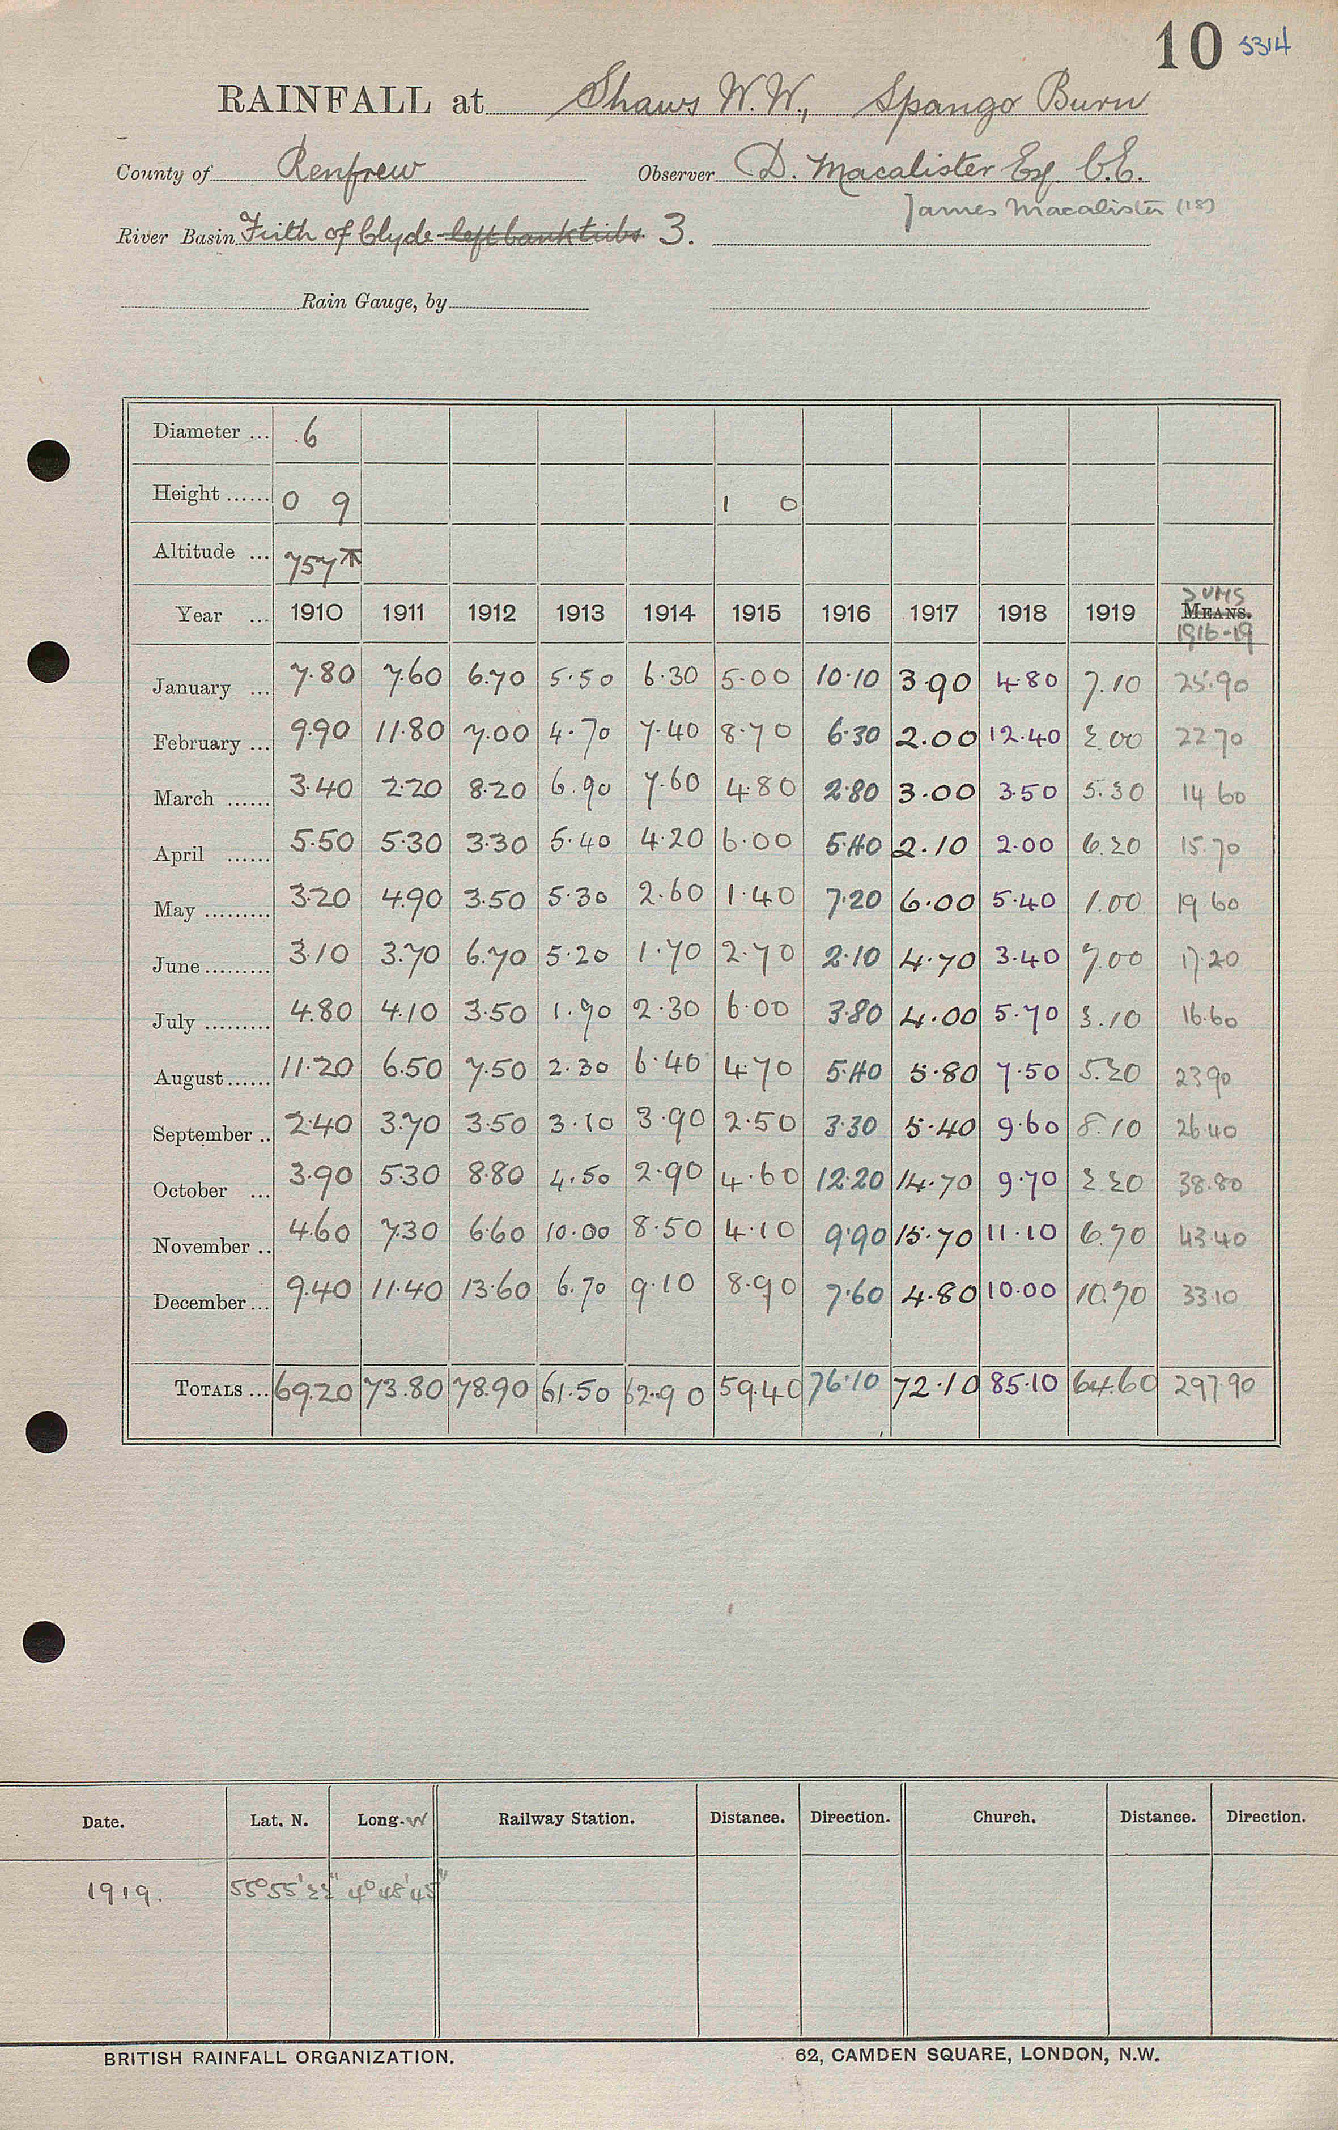 10 5314
RAINFALL at Shaws W.W., Spango Burn
County of Renfrew Observer D. Macalister Esq. C.E.
James Macalister (18)
River Basin Firth of Clyde - left bank tribs 3.
Rain Gauge, by
Diameter ... 6
Height ...... 0 9 1 0
Altitude ... 757 T
Year ... 1910 1911 1912 1913 1914 1915 1916 1917 1918 1919 SUMS MEANS. 1916-19
January ... 7.80 7.60 6.70 5.50 6.30 5.00 10.10 3.90 4.80 7.10 25.90
February ... 9.90 11.80 7.00 4.70 7.40 8.70 6.30 2.00 12.40 2.00 22.70
March ...... 3.40 2.20 8.20 6.90 7.60 4.80 2.80 3.00 3.50 5.30 14.60
April ...... 5.50 5.30 3.30 5.40 4.20 6.00 5.40 2.10 2.00 6.20 15.70
May ......... 3.20 4.90 3.50 5.30 2.60 1.40 7.20 6.00 5.40 1.00 19.60
June ......... 3.10 3.70 6.70 5.20 1.70 2.70 2.10 4.70 3.40 7.00 17.20
July ......... 4.80 4.10 3.50 1.90 2.30 6.00 3.80 4.00 5.70 3.10 16.60
August ...... 11.20 6.50 7.50 2.30 6.40 4.70 5.40 5.80 7.50 5.20 23.90
September .. 2.40 3.70 3.50 3.10 3.90 2.50 3.30 5.40 9.60 8.10 26.40
October ... 3.90 5.30 8.80 4.50 2.90 4.60 12.20 14.70 9.70 2.20 38.80
November .. 4.60 7.30 6.60 10.00 8.50 4.10 9.90 15.70 11.10 6.70 43.40
December ... 9.40 11.40 13.60 6.70 9.10 8.90 7.60 4.80 10.00 10.70 33.10
TOTALS ... 69.20 73.80 78.90 61.50 62.90 59.40 76.10 72.10 85.10 64.60 297.90
Date. Lat. N. Long. W Railway Station. Distance. Direction. Church. Distance. Direction.
1919. 55° 55' 22" 4° 48' 45"
BRITISH RAINFALL ORGANIZATION. 62, CAMDEN SQUARE, LONDON, N.W.